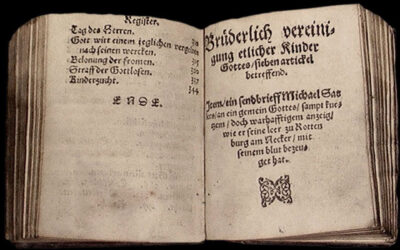 Register.
Tag des Herren.
Gott wirt einem jeglichen vergelten
nach seinen wercken.
Belonung der fromen. 315
Straff der Gottlosen.
Kinderzucht. 344
ENDE.
Brüderlich vereini-
gung etlicher Kinder
Gottes/ sieben artickel
betreffend.
Item/ ein sendbrieff Michael Sat
lers/ an ein gemein Gottes/ sampt kur
tzem/ doch warhafftigem anzeig/
wie er seine leer zu Rotten
burg am Necker/ mit
seinem blut bezeu-
get hat.